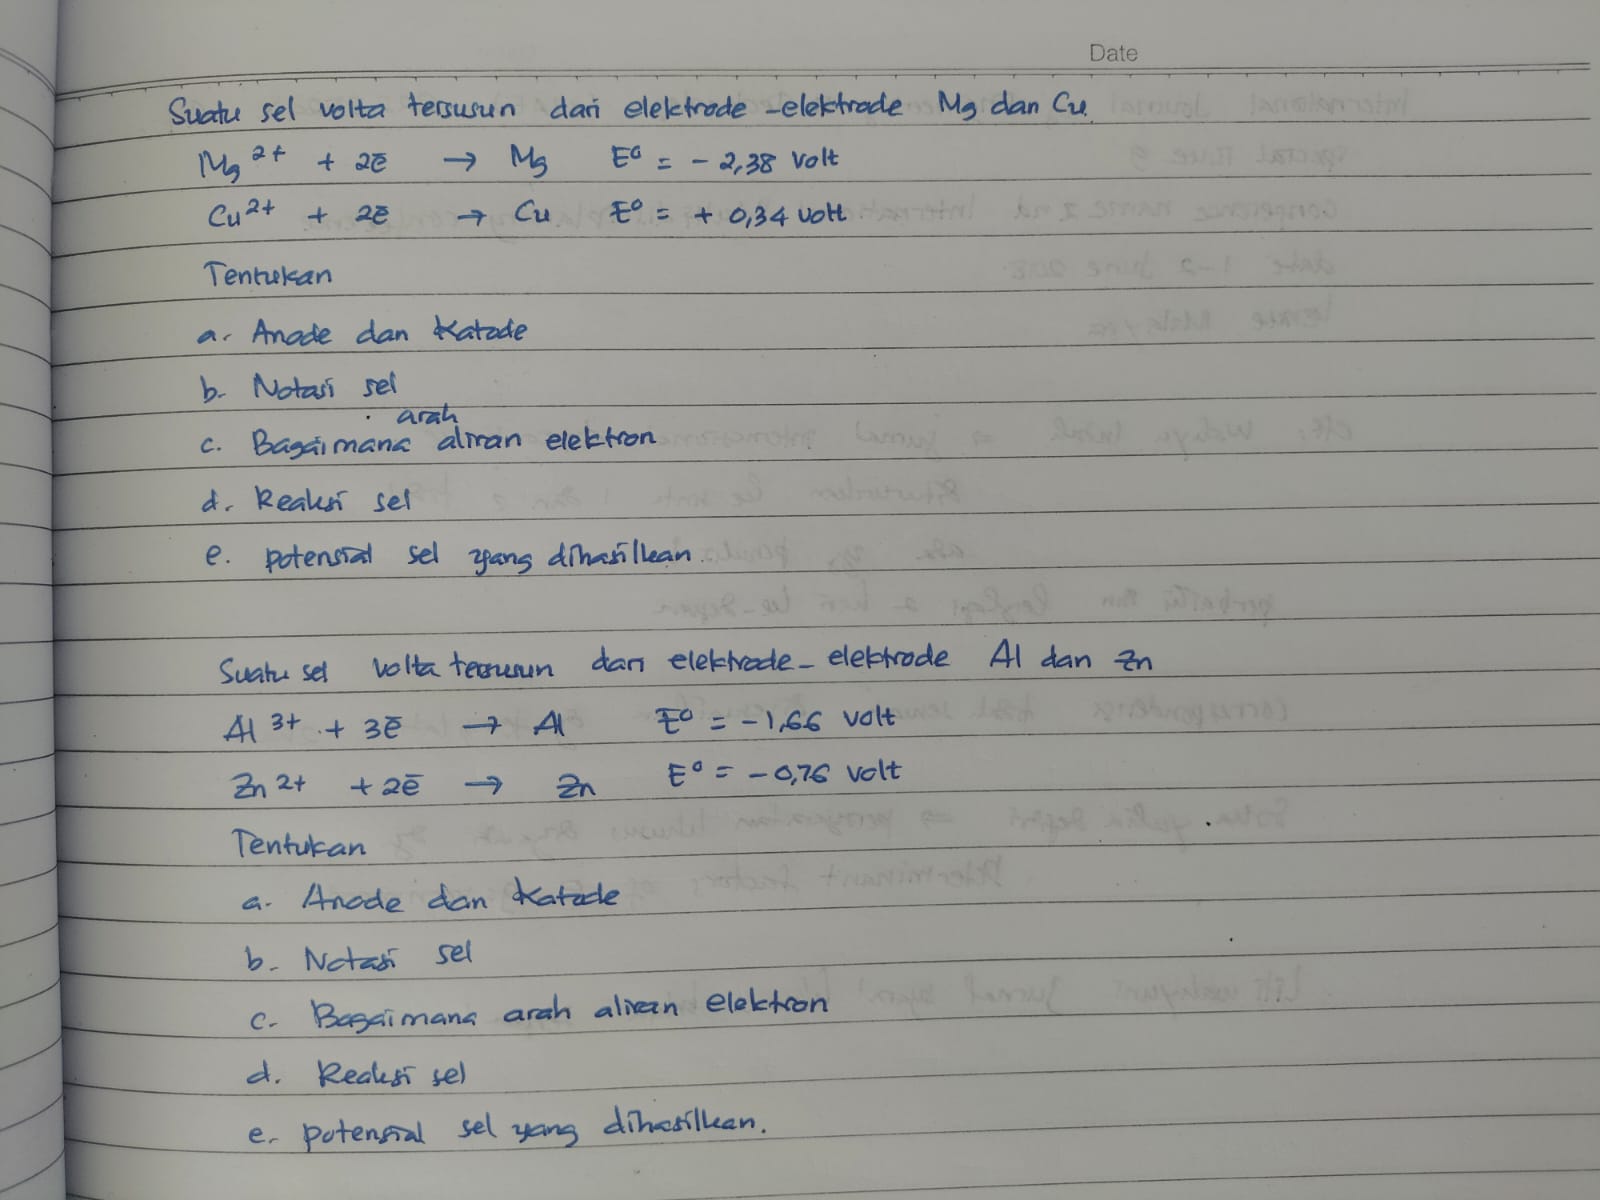 Date
Suatu sel volta tersusun dari elektrode-elektrode Mg dan Cu.
Mg²⁺ + 2ē → Mg E⁰ = - 2,38 volt
Cu²⁺ + 2ē → Cu E⁰ = + 0,34 volt
Tentukan
a. Anode dan Katode
b. Notasi sel
c. Bagaimana arah aliran elektron
d. Reaksi sel
e. potensial sel yang dihasilkan.
Suatu sel volta tersusun dari elektrode-elektrode Al dan Zn
Al³⁺ + 3ē → Al E⁰ = -1,66 volt
Zn²⁺ + 2ē → Zn E⁰ = -0,76 volt
Tentukan
a. Anode dan Katode
b. Notasi sel
c. Bagaimana arah aliran elektron
d. Reaksi sel
e. potensial sel yang dihasilkan.